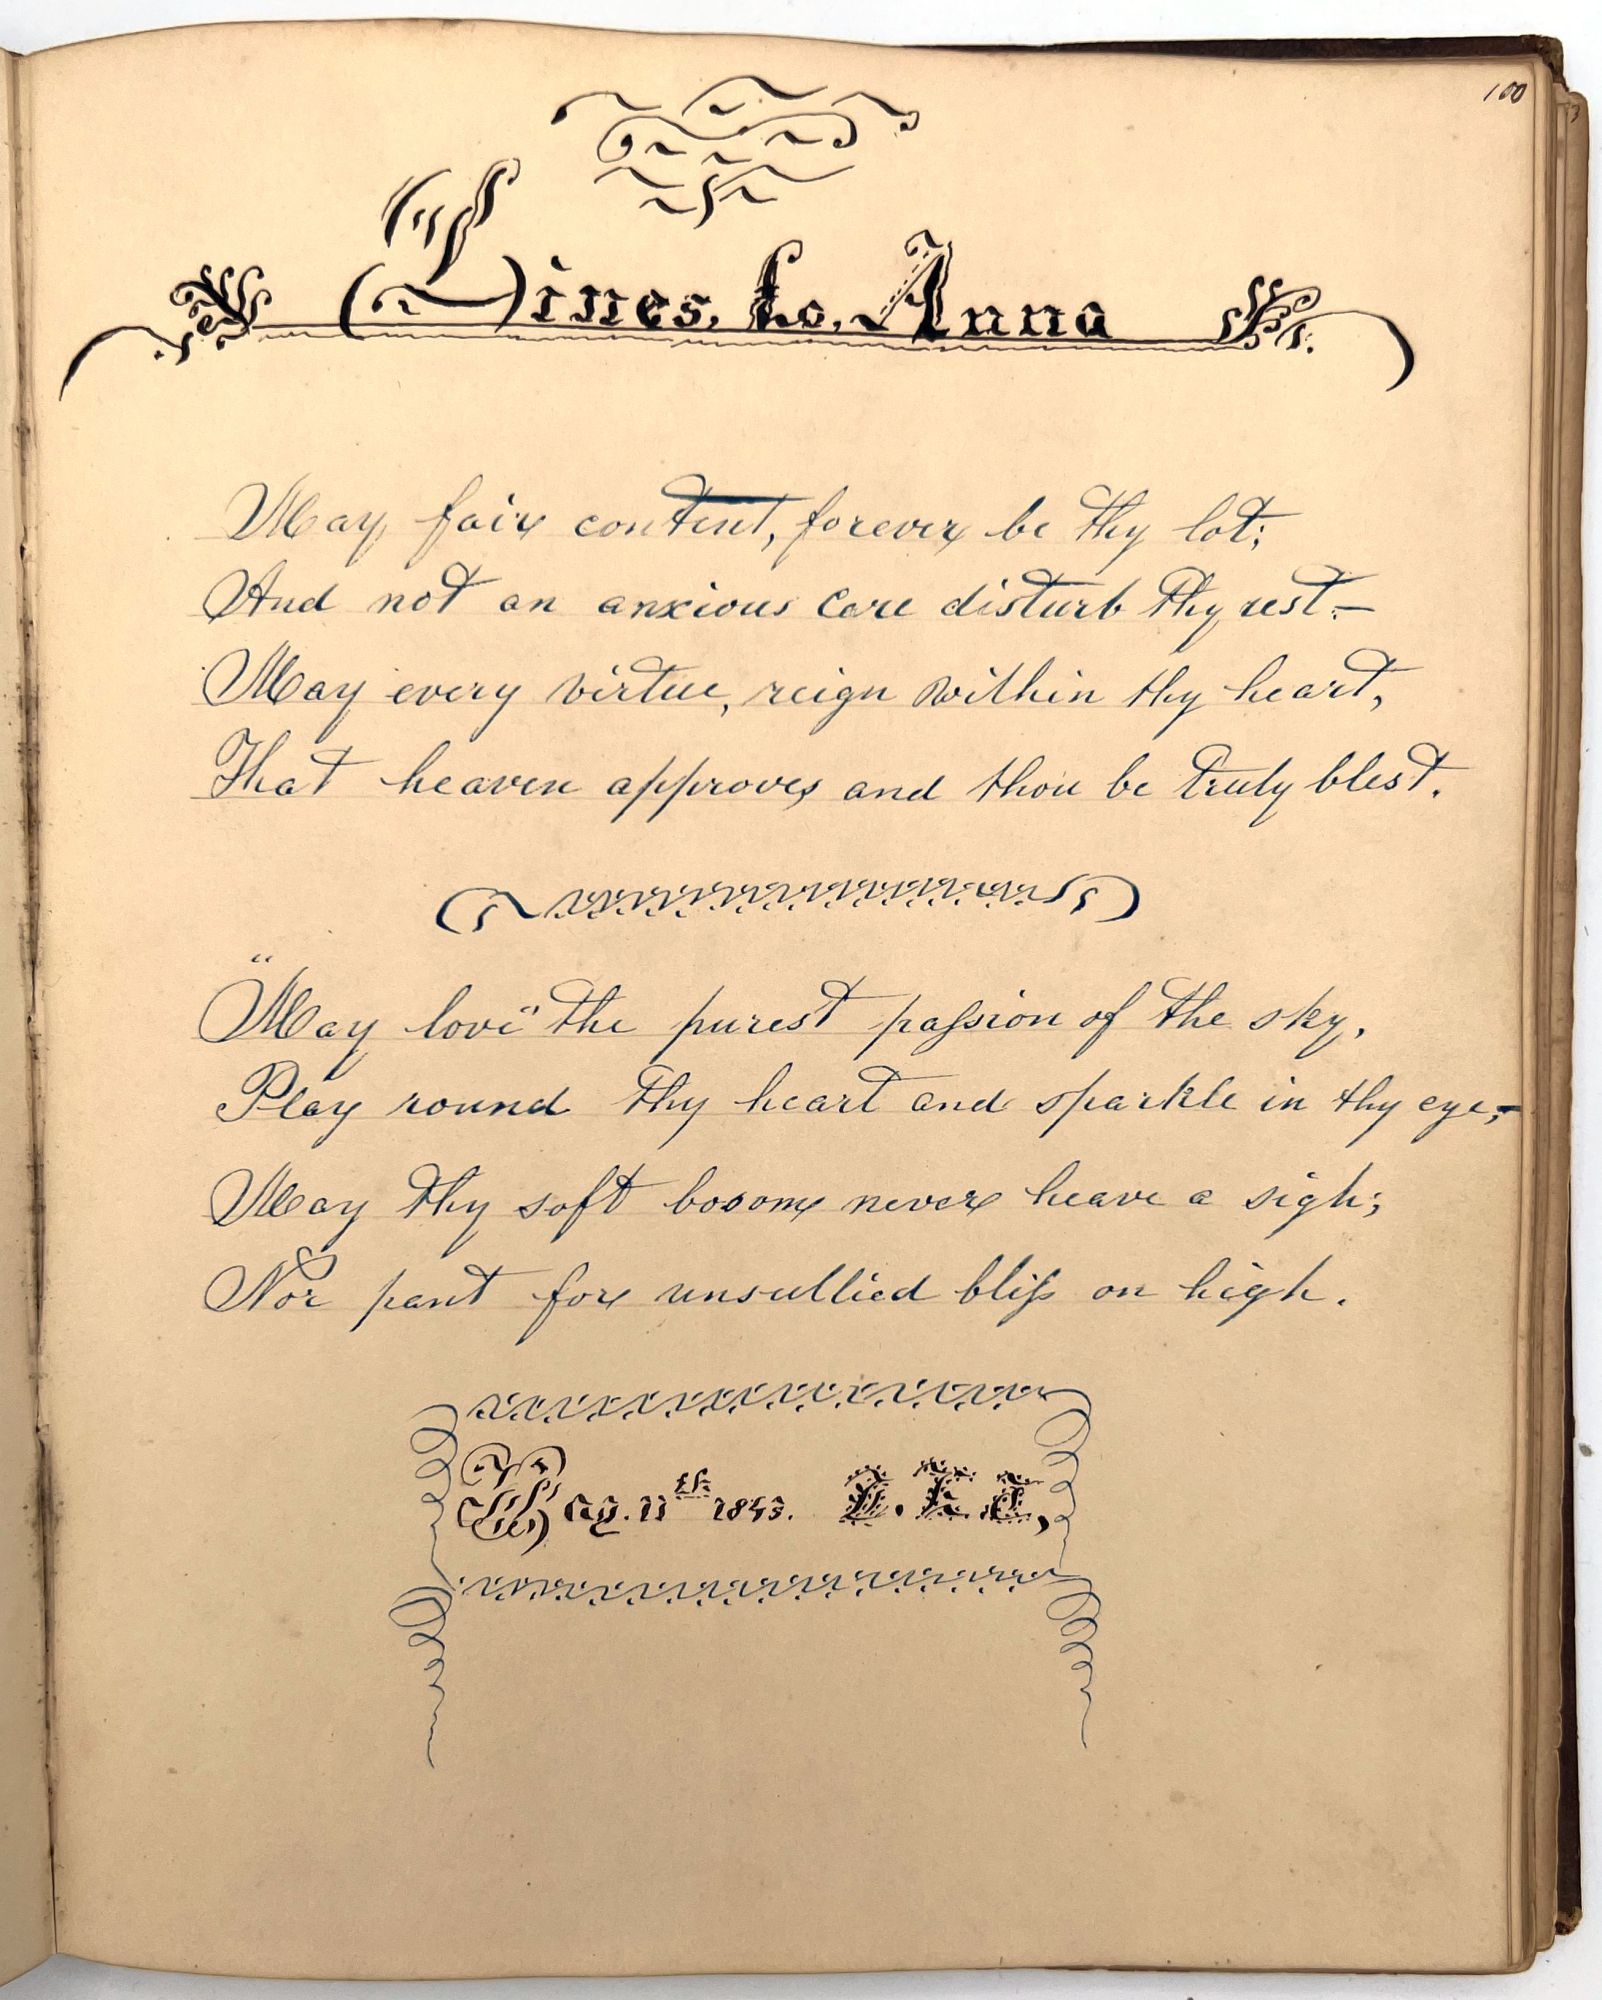 100
Lines, to, Anna
May fair content, forever be thy lot;
And not an anxious care disturb thy rest.—
May every virtue, reign within thy heart,
That heaven approves and thou be truly blest.
"May love" the purest paſsion of the sky,
Play round thy heart and sparkle in thy eye,—
May thy soft bosom never heave a sigh;
Nor pant for unsullied bliſs on high.
May. 11th 1843.